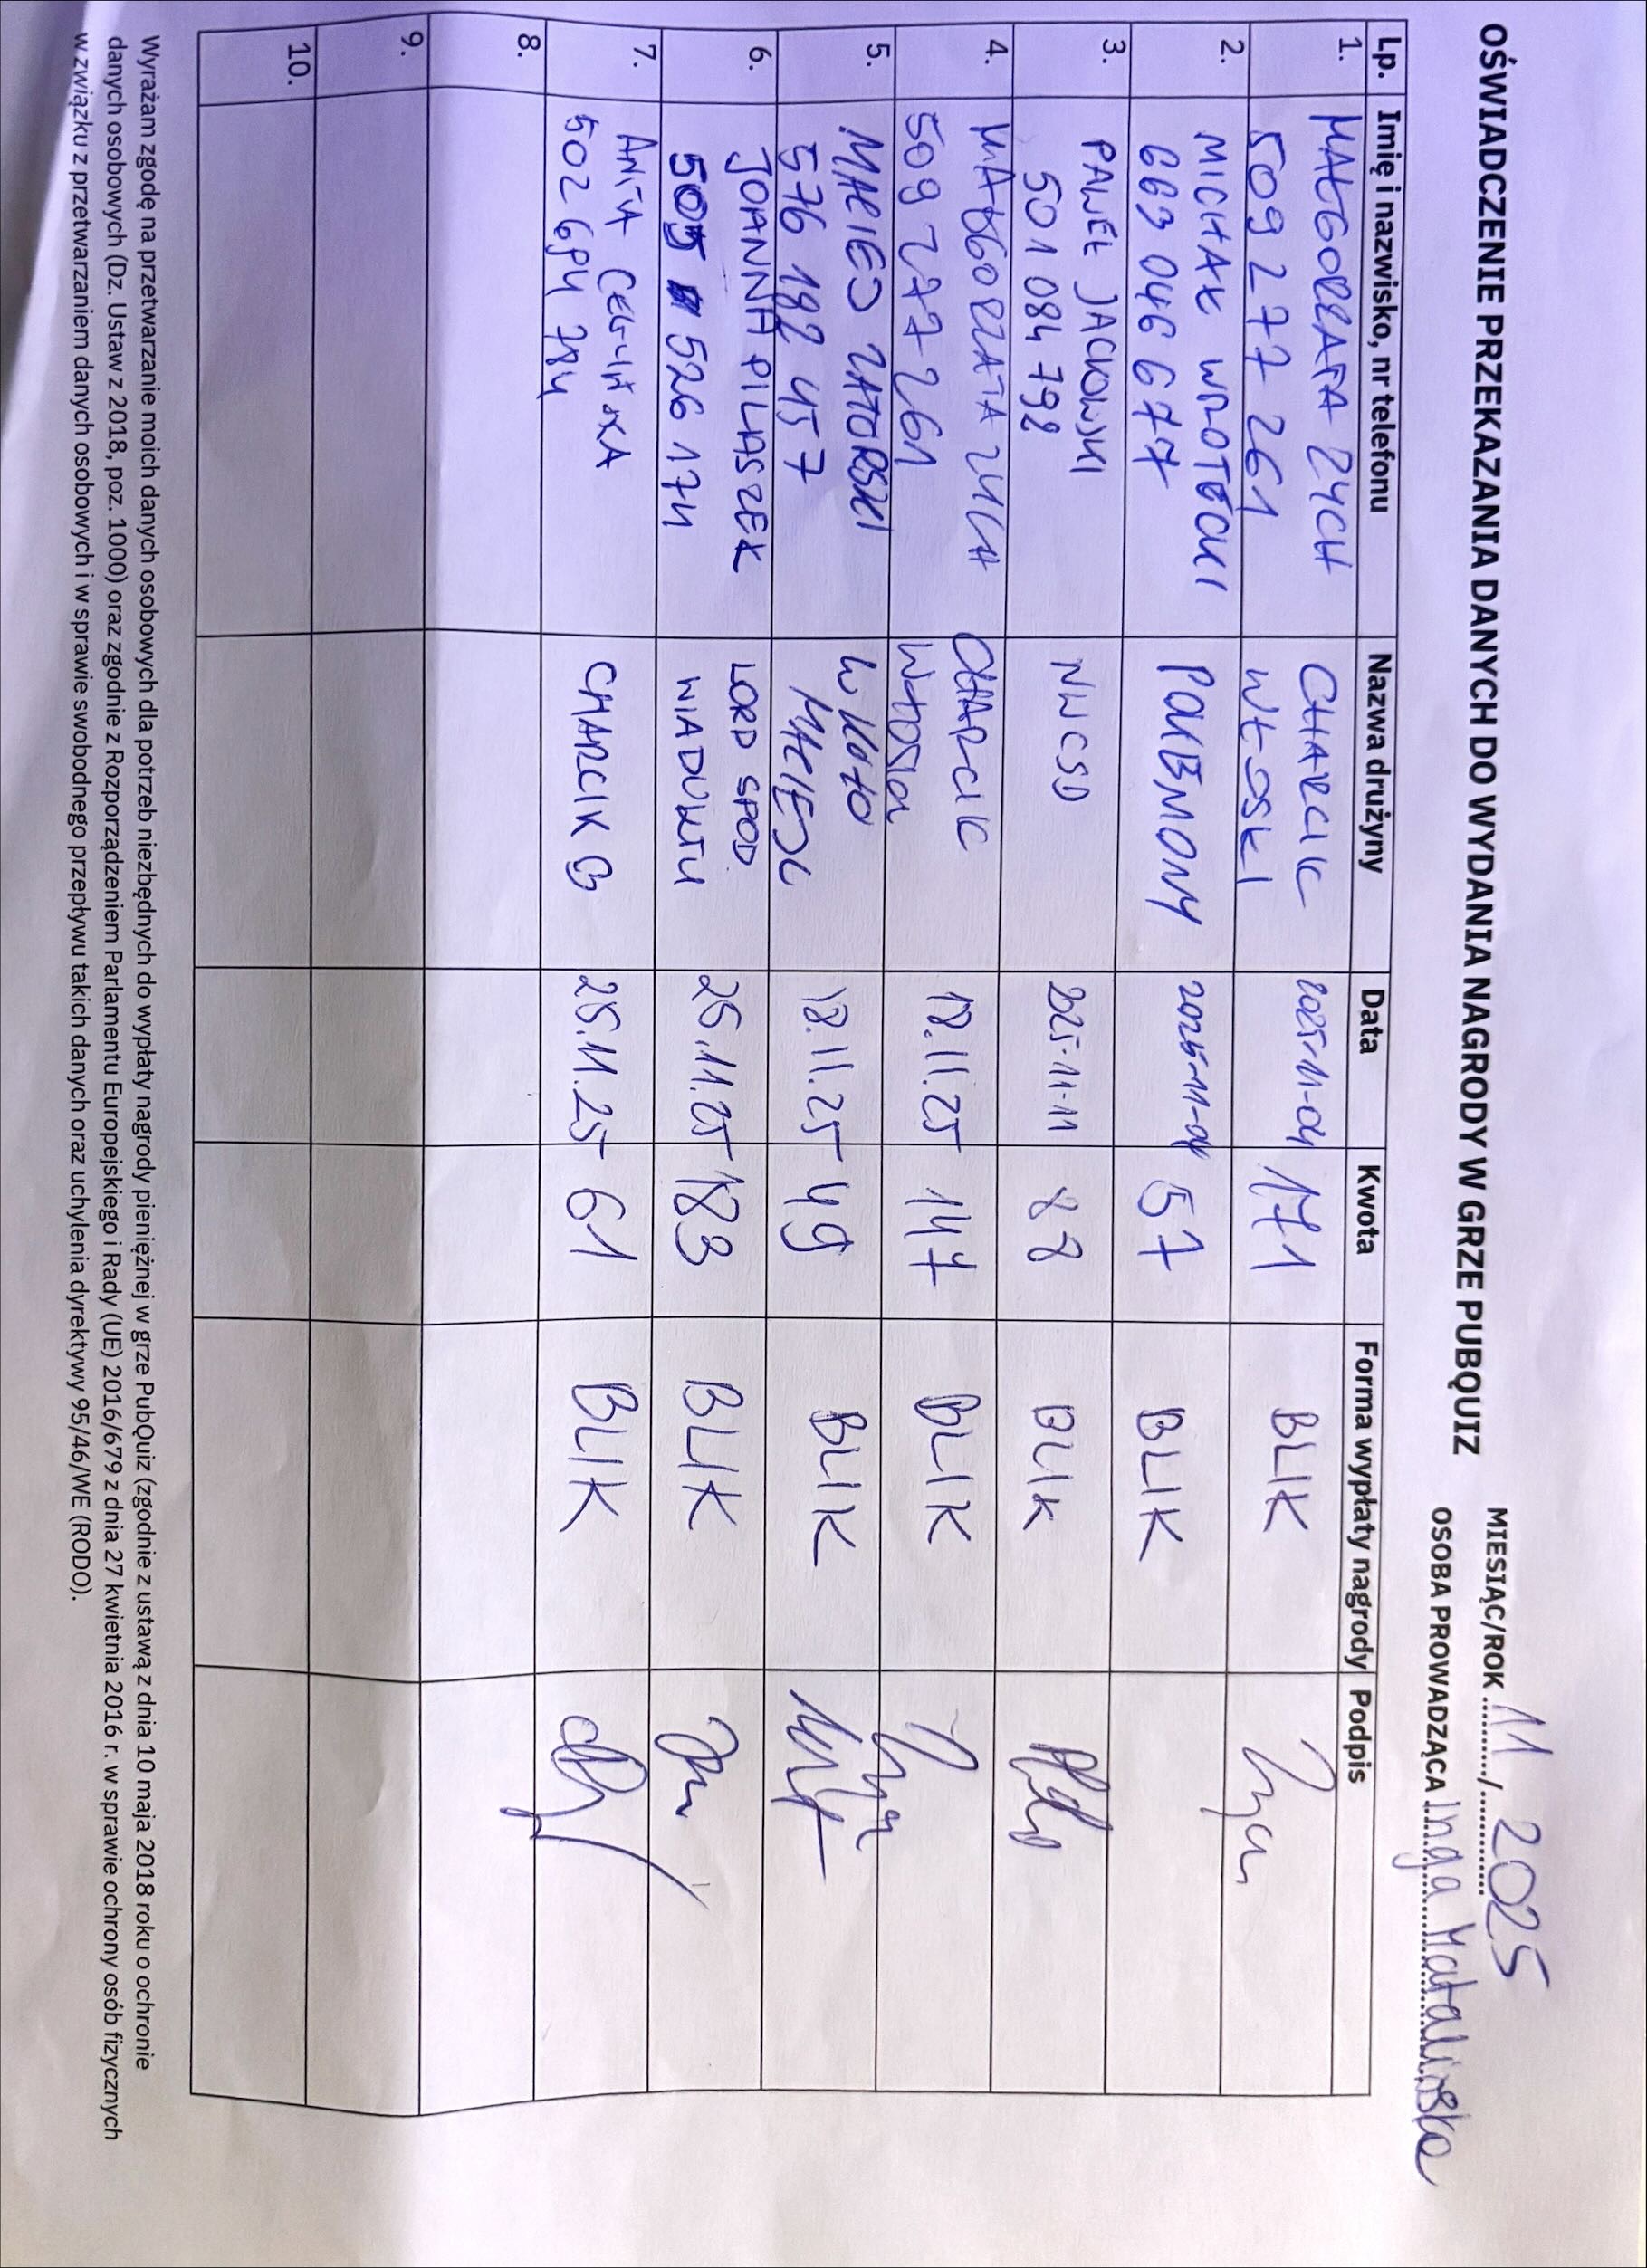 OŚWIADCZENIE PRZEKAZANIA DANYCH DO WYDANIA NAGRODY W GRZE PUBQUIZ
MIESIĄC/ROK 11 / 2025
OSOBA PROWADZĄCA Inga Matalińska
Lp. Imię i nazwisko, nr telefonu Nazwa drużyny Data Kwota Forma wypłaty nagrody Podpis
1. MAŁGORZATA ZYCH CHARCIK 2025-11-04 171 BLIK
509 277 261 WŁOSKI
2. MICHAŁ 2025-11-04 57 BLIK
663 046 677
3. PAWEŁ JACKOWSKI NWCSD 2025-11-11 88 BLIK
501 084 792
4. MAŁGORZATA ZYCH CHARCIK 18.11.25 147 BLIK
509 277 261
5. MACIEJ ZATORSKI WKOŁO 18.11.25 49 BLIK
576 182 457 MACIEJC
6. JOANNA PILASZEK LORD SPOD 25.11.25 183 BLIK
505 526 174 WIADUKTU
7. ANITA CHARCIK 25.11.25 61 BLIK
502 694 784
8.
9.
10.
Wyrażam zgodę na przetwarzanie moich danych osobowych dla potrzeb niezbędnych do wypłaty nagrody pieniężnej w grze PubQuiz (zgodnie z ustawą z dnia 10 maja 2018 roku o ochronie
danych osobowych (Dz. Ustaw z 2018, poz. 1000) oraz zgodnie z Rozporządzeniem Parlamentu Europejskiego i Rady (UE) 2016/679 z dnia 27 kwietnia 2016 r. w sprawie ochrony osób fizycznych
w związku z przetwarzaniem danych osobowych i w sprawie swobodnego przepływu takich danych oraz uchylenia dyrektywy 95/46/WE (RODO).